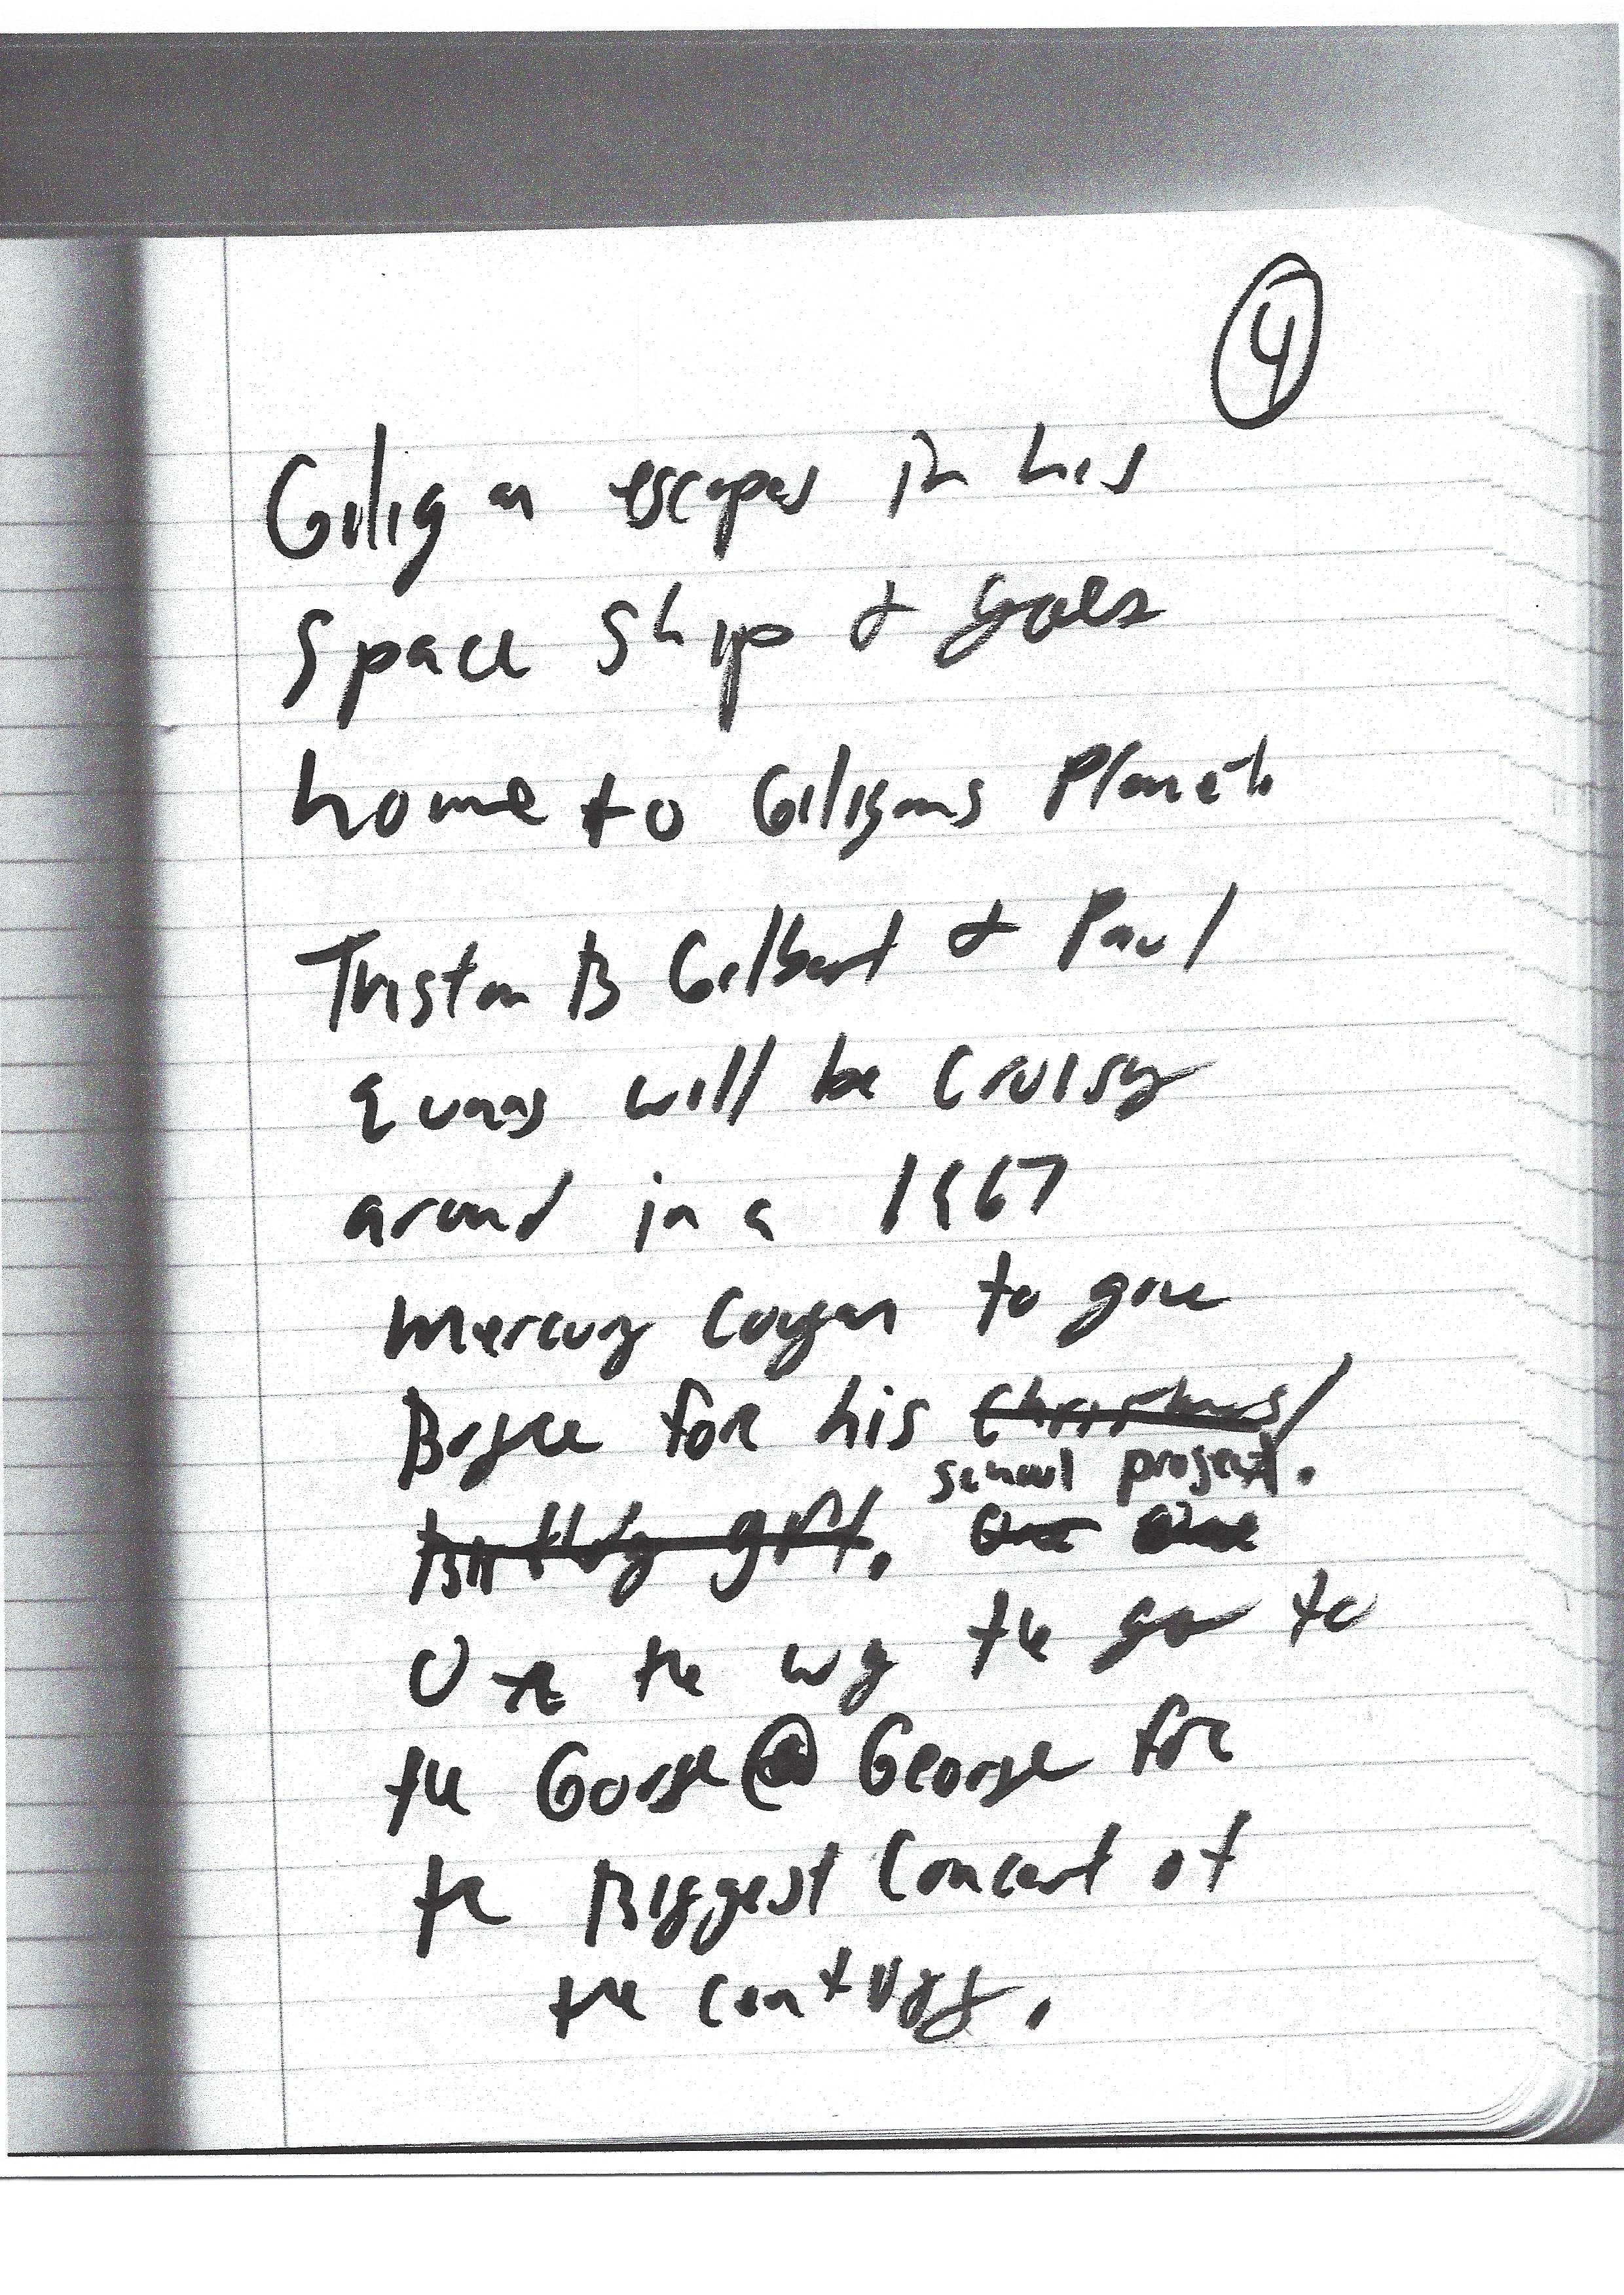 4
Giligan escapes in his
Space Ship & goes
home to Giligans Planet.
Tristan B Gilbert & Paul
will be cruisg
around in a 1967
Mercury Cougar to give
Bryce for his Christmas/
school project.
Birthday gift.
the way the go to
the Gorge @ George for
the Biggest Concert of
the century.